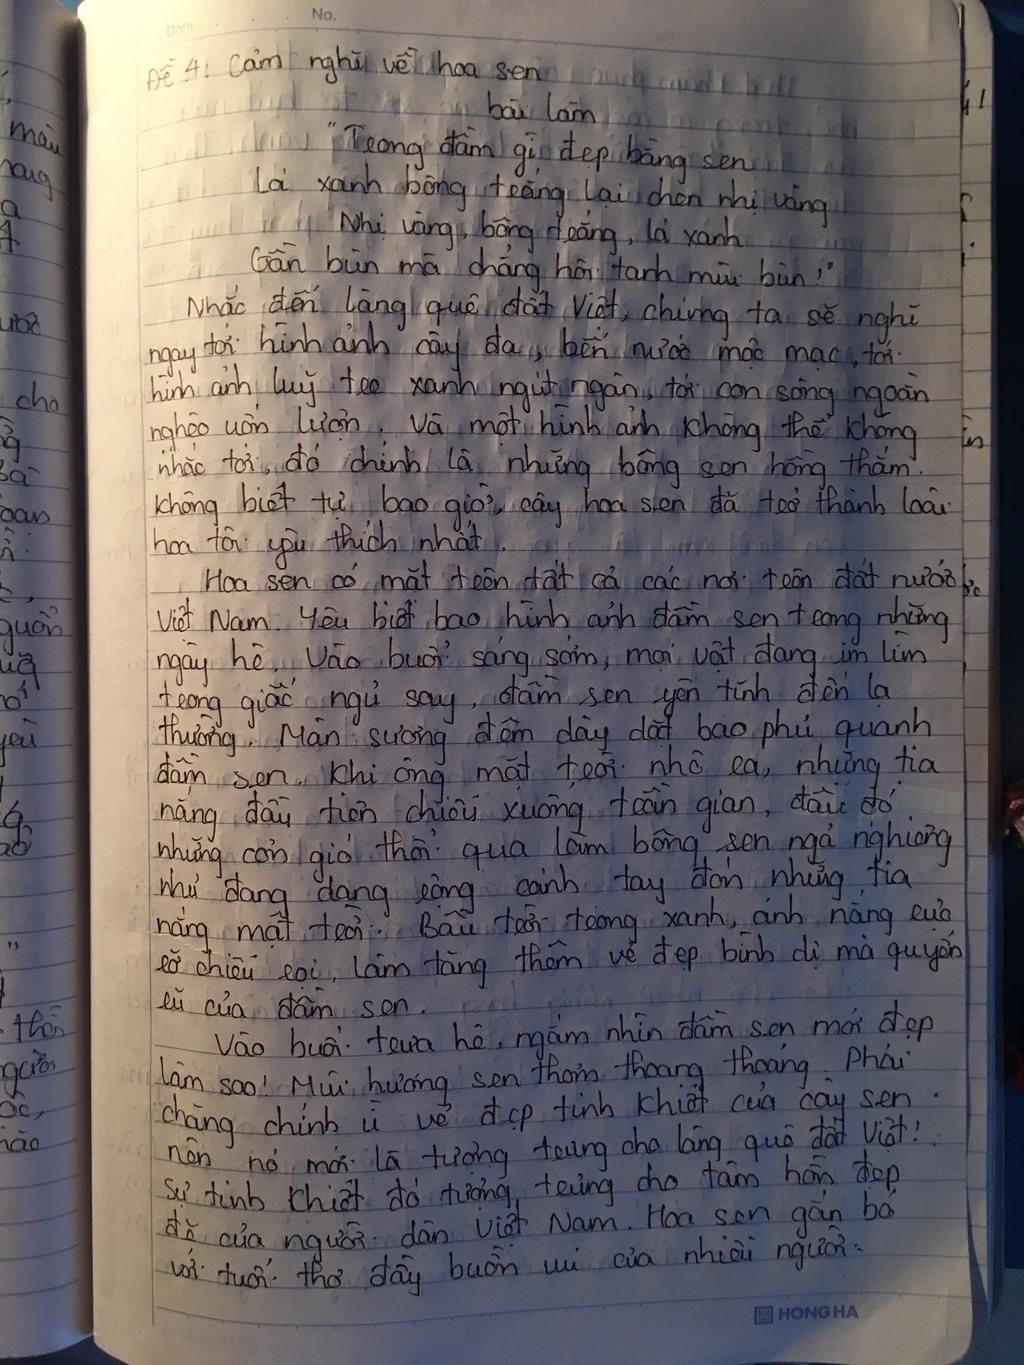 Date
No.
Đề 4: Cảm nghĩ về hoa sen
bài làm
"Trong đầm gì đẹp bằng sen
Lá xanh bông trắng lại chen nhị vàng
Nhị vàng, bông trắng, lá xanh
Gần bùn mà chẳng hôi tanh mùi bùn!"
Nhắc đến làng quê đất Việt, chúng ta sẽ nghĩ
ngay tới hình ảnh cây đa, bến nước mộc mạc, tới
hình ảnh luỹ tre xanh ngút ngàn, tới con sông ngoằn
nghèo uốn lượn. Và một hình ảnh không thể không
nhắc tới, đó chính là những bông sen hồng thắm.
Không biết tự bao giờ, cây hoa sen đã trở thành loài
hoa tôi yêu thích nhất.
Hoa sen có mặt trên tất cả các nơi trên đất nước
Việt Nam. Yêu biết bao hình ảnh đầm sen trong những
ngày hè. Vào buổi sáng sớm, mọi vật đang im lìm
trong giấc ngủ say, đầm sen yên tĩnh đến lạ
thường. Màn sương đêm dày dặt bao phủ quanh
đầm sen. Khi ông mặt trời nhô ra, những tia
nắng đầu tiên chiếu xuống trần gian, đâu đó
những cơn gió thổi qua làm bông sen ngả nghiêng
như đang dang rộng cánh tay đón những tia
nắng mặt trời. Bầu trời trong xanh, ánh nắng rực
rỡ chiếu rọi, làm tăng thêm vẻ đẹp bình dị mà quyến
rũ của đầm sen.
Vào buổi trưa hè, ngắm nhìn đầm sen mới đẹp
làm sao! Mùi hương sen thơm thoang thoảng. Phải
chăng chính vì vẻ đẹp tinh khiết của cây sen
nên nó mới là tượng trưng cho làng quê đất Việt!
Sự tinh khiết đó tượng trưng cho tâm hồn đẹp
đẽ của người dân Việt Nam. Hoa sen gắn bó
với tuổi thơ đầy buồn vui của nhiều người.
HONG HA